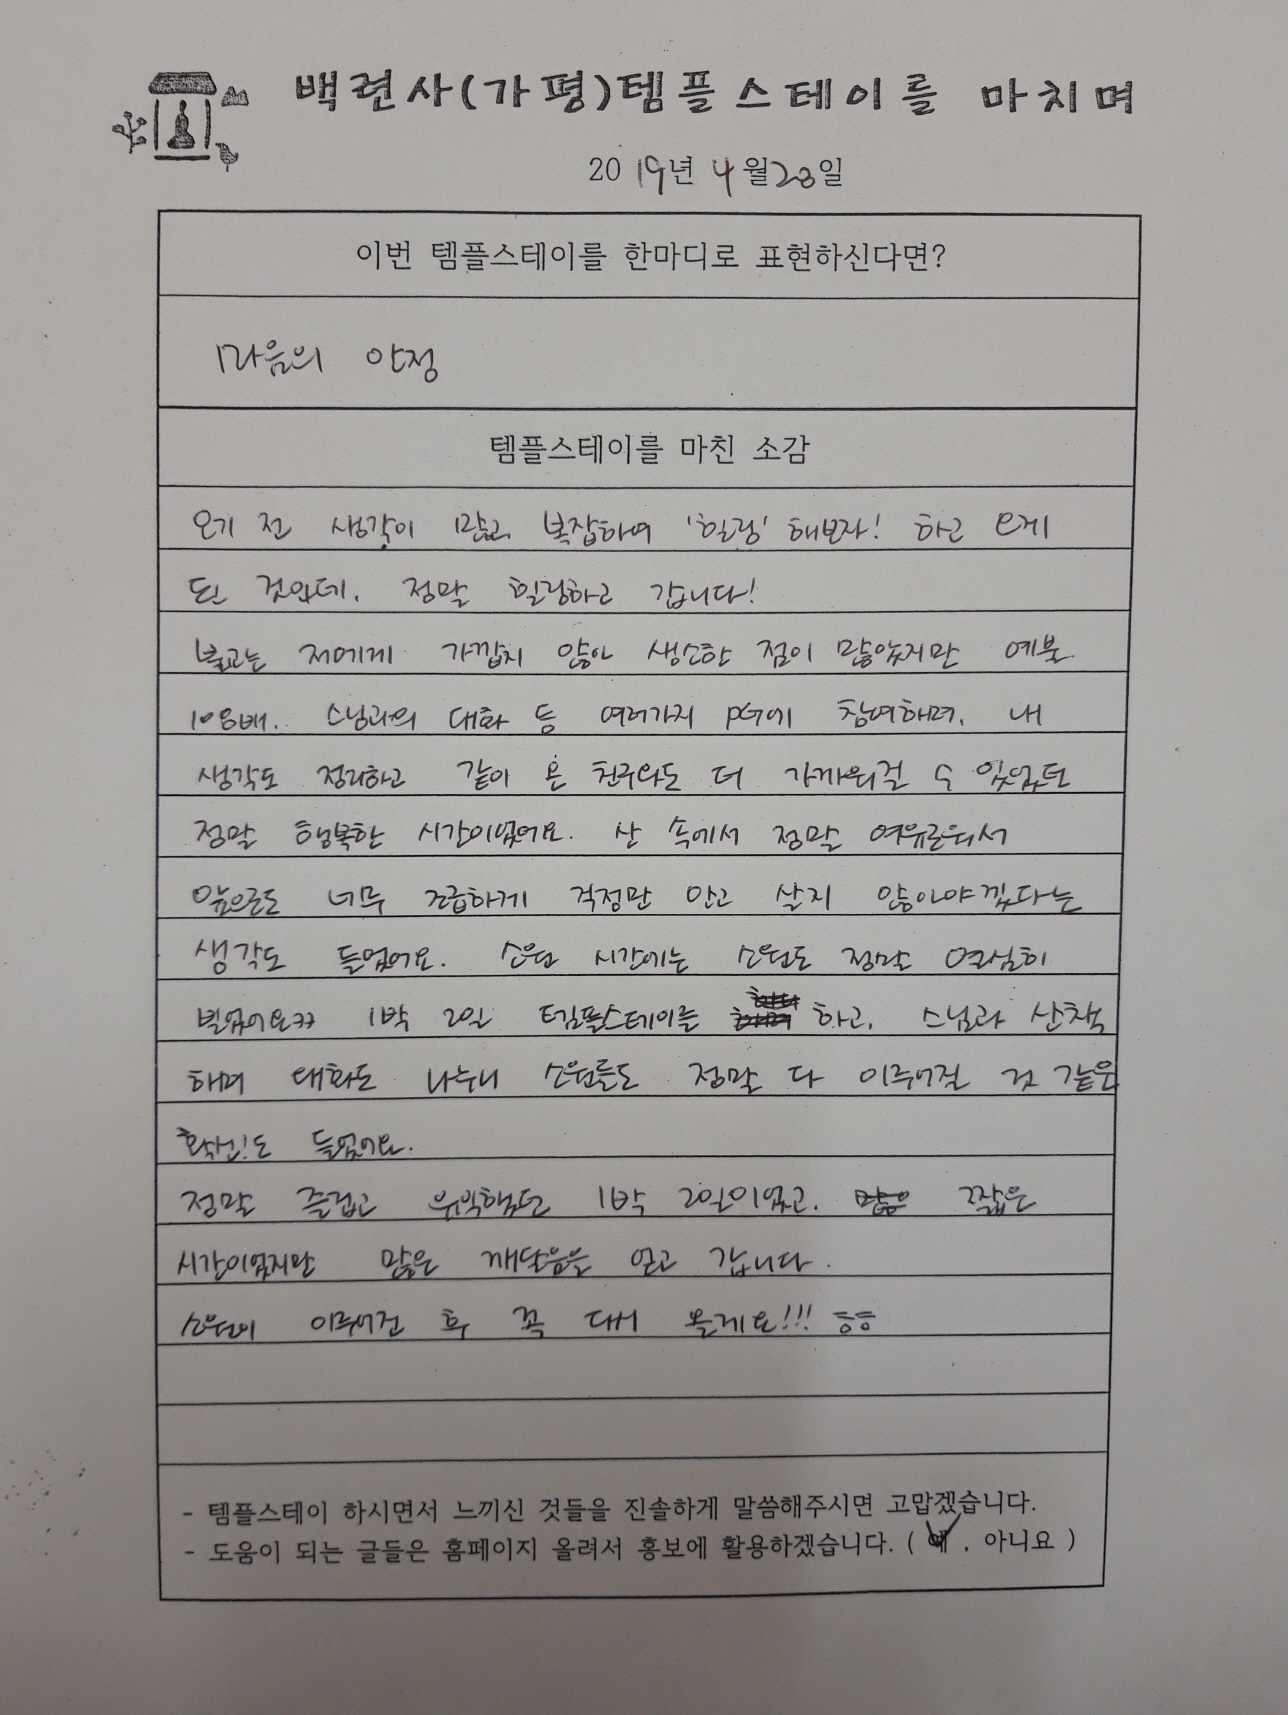 백련사(가평)템플스테이를 마치며
2019년 4월 23일
이번 템플스테이를 한마디로 표현하신다면?
마음의 안정
템플스테이를 마친 소감
오기 전 생각이 많고 복잡하여 '힐링' 해보자! 하고 오게
된 것인데, 정말 힐링하고 갑니다!
불교는 저에게 가깝지 않아 생소한 점이 많았지만 예불
108배, 스님과의 대화 등 여러가지 PG에 참여하며, 내
생각도 정리하고 같이 온 친구와도 더 가까워질 수 있었던
정말 행복한 시간이었어요. 산 속에서 정말 여유로워서
앞으로도 너무 조급하게 걱정만 안고 살지 않아야겠다는
생각도 들었어요. 소원 시간에는 소원도 정말 열심히
빌었어요ㅋㅋ 1박 2일 템플스테이를 하고, 스님과 산책
하며 대화도 나누니 소원들도 정말 다 이루어질 것 같은
확신!도 들었어요.
정말 즐겁고 유익했던 1박 2일이었고, 짧은
시간이었지만 많은 깨달음을 얻고 갑니다.
소원이 이루어진 후 꼭 다시 올게요!!! ㅎㅎ
- 템플스테이 하시면서 느끼신 것들을 진솔하게 말씀해주시면 고맙겠습니다.
- 도움이 되는 글들은 홈페이지 올려서 홍보에 활용하겠습니다. ( 예 , 아니요 )